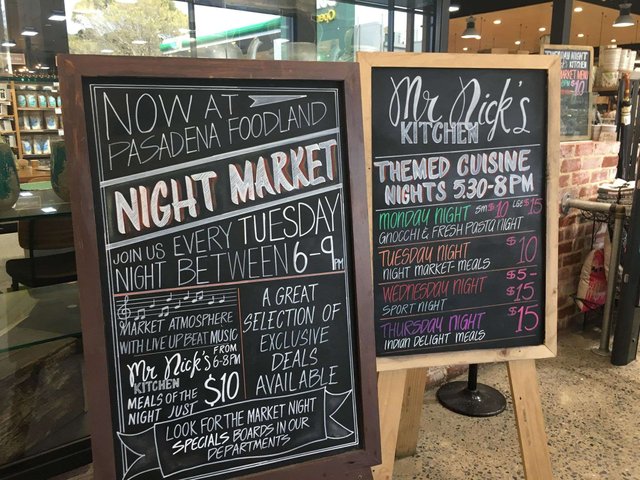 NOW AT
PASADENA FOODLAND
NIGHT MARKET
JOIN US EVERY TUESDAY
NIGHT BETWEEN 6-9PM
MARKET ATMOSPHERE
WITH LIVE UPBEAT MUSIC
FROM
6-8PM
Mr Nick's
KITCHEN
MEALS OF THE
NIGHT JUST
$10
A GREAT
SELECTION OF
EXCLUSIVE
DEALS
AVAILABLE
LOOK FOR THE MARKET NIGHT
SPECIALS BOARDS IN OUR
DEPARTMENTS
Mr Nick's
KITCHEN
THEMED CUISINE
NIGHTS 5.30-8PM
MONDAY NIGHT SM $10 LGE $15
GNOCCHI & FRESH PASTA NIGHT
TUESDAY NIGHT $10
NIGHT MARKET MEALS
WEDNESDAY NIGHT $5-
SPORT NIGHT $15
THURSDAY NIGHT $15
INDIAN DELIGHT MEALS
TUESDAY NIGHT
KITCHEN
MARKET MENU
$10